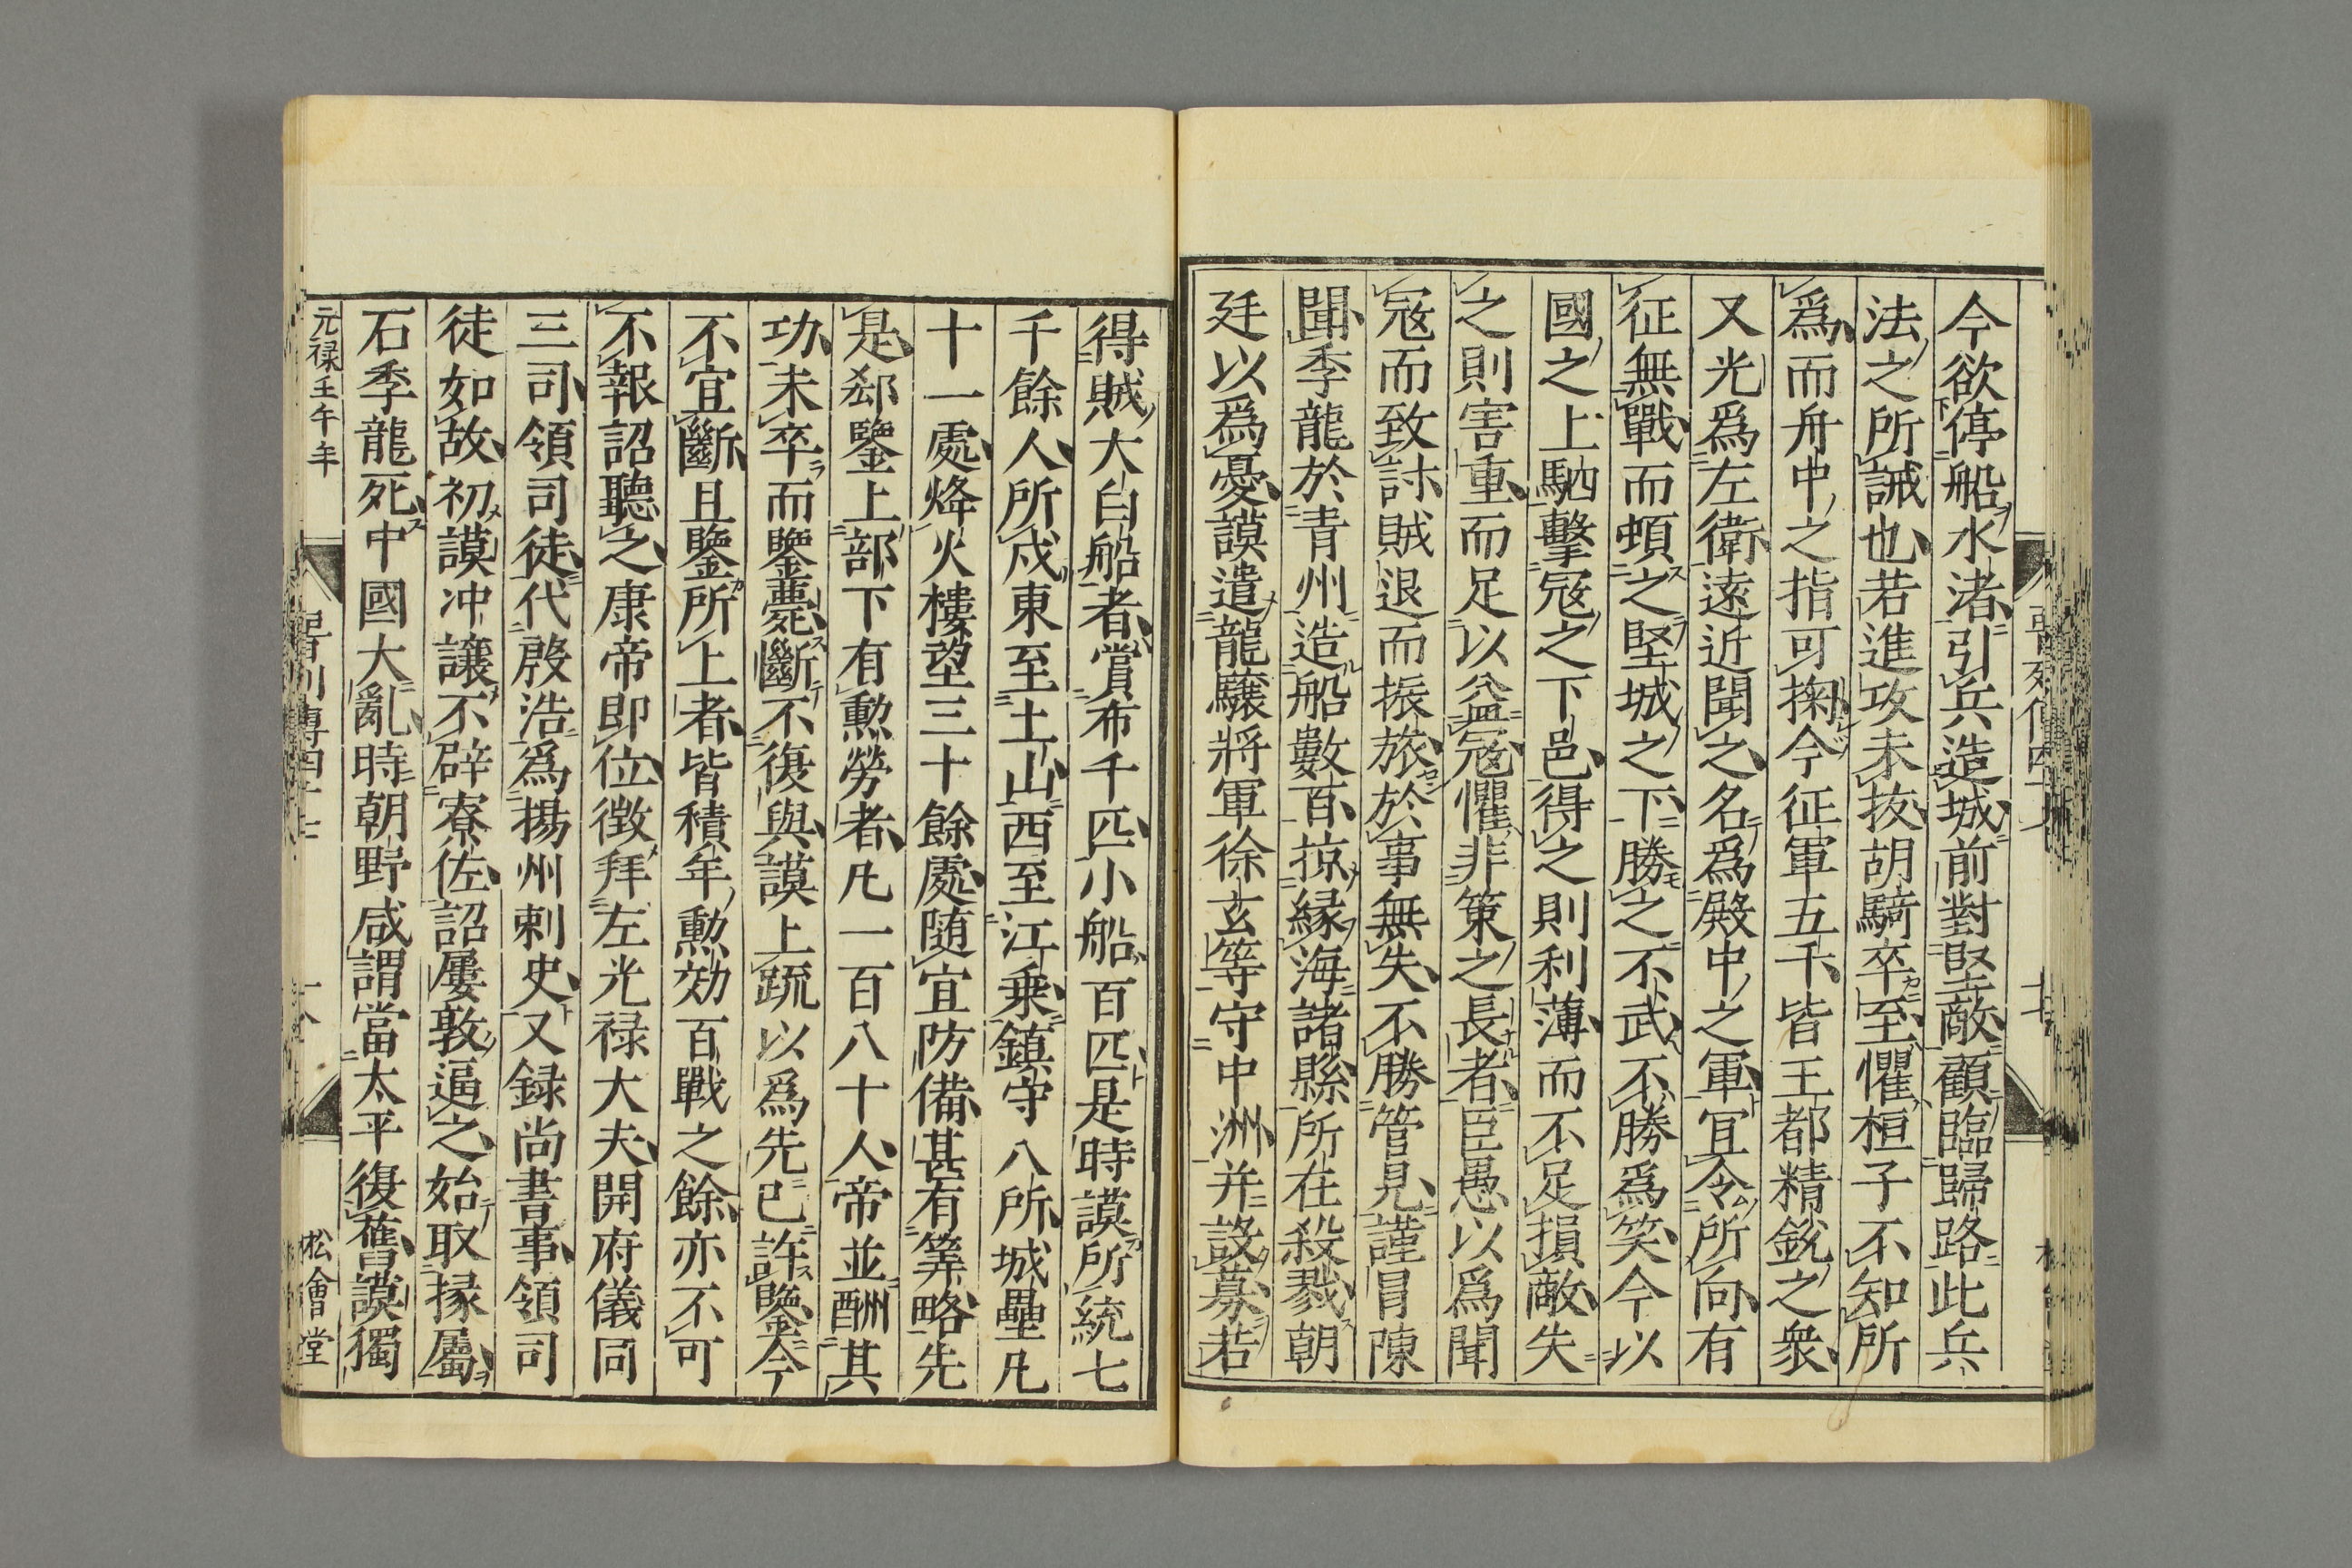 今欲停船水渚引兵造城前對堅敵顧臨歸路此兵
法之所誡也若進攻未拔胡騎卒至懼桓子不知所
爲而舟中之指可掬今征軍五千皆王都精銳之衆
又光爲左衛遠近聞之名爲殿中之軍宜令所向有
征無戰而頓之堅城之下勝之不武不勝爲笑今以
國之上駟擊寇之下邑得之則利薄而不足損敵失
之則害重而足以益寇懼非策之長者臣愚以爲聞
寇而致討賊退而振旅於事無失不勝管見謹冒陳
聞季龍於青州造船數百掠緣海諸縣所在殺戮朝
廷以爲憂謨遣龍驤將軍徐玄等守中洲并設募若
得賊大白船者賞布千匹小船百匹是時謨所統七
千餘人所戍東至土山西至江乗鎮守八所城壘凡
十一處烽火樓望三十餘處随宜防備甚有筭略先
是郄鑒上部下有勲勞者凡一百八十人帝並酬其
功未卒而鑒薨斷不復與謨上疏以爲先已許鑒今
不宜斷且鑒所上者皆積年勲効百戰之餘亦不可
不報詔聽之康帝即位徴拜左光禄大夫開府儀同
三司領司徒代殷浩爲揚州刺史又録尚書事領司
徒如故初謨冲讓不辟寮佐詔屢敦逼之始取掾屬
石季龍死中國大亂時朝野咸謂當太平復舊謨獨
元禄壬午年
晉列傳四十七
十八
松會堂